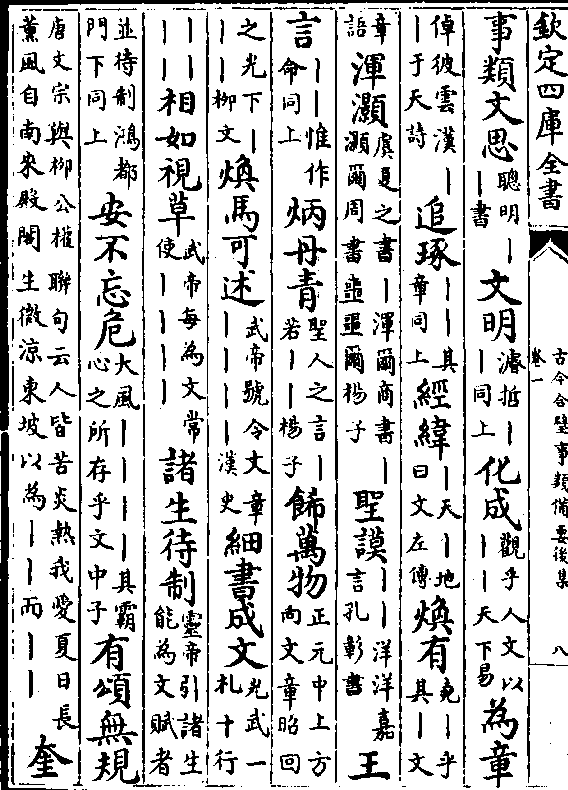 欽定四庫全書
古今合璧事類備要後集
卷一
八
事類文思聰明｜｜書文明濬哲｜｜同上化成觀乎人文以｜｜天下易為章
倬彼雲漢｜｜于天詩追琢｜｜其章同上經緯｜天｜地曰文左傳煥有堯｜乎其｜文
章語渾灝虞夏之書｜渾爾商書｜灝灝爾周書噩噩爾楊子聖謨｜｜洋洋嘉言孔彰書王
言｜｜惟作命同上炳丹青聖人之言｜若｜｜楊子餙萬物正元中上方向文章昭回
之光下｜｜｜柳文煥馬可述武帝號令文章｜｜｜｜漢史細書成文光武一札十行
｜｜｜｜相如視草武帝每為文常使｜｜｜｜諸生待制靈帝引諸生能為文賦者
並待制鴻都門下同上安不忘危大風｜｜｜｜其霸心之所存乎文中子有頌無規
唐文宗與柳公權聯句云人皆苦炎熱我愛夏日長薰風自南來殿閣生微涼東坡以為｜｜而｜｜奎